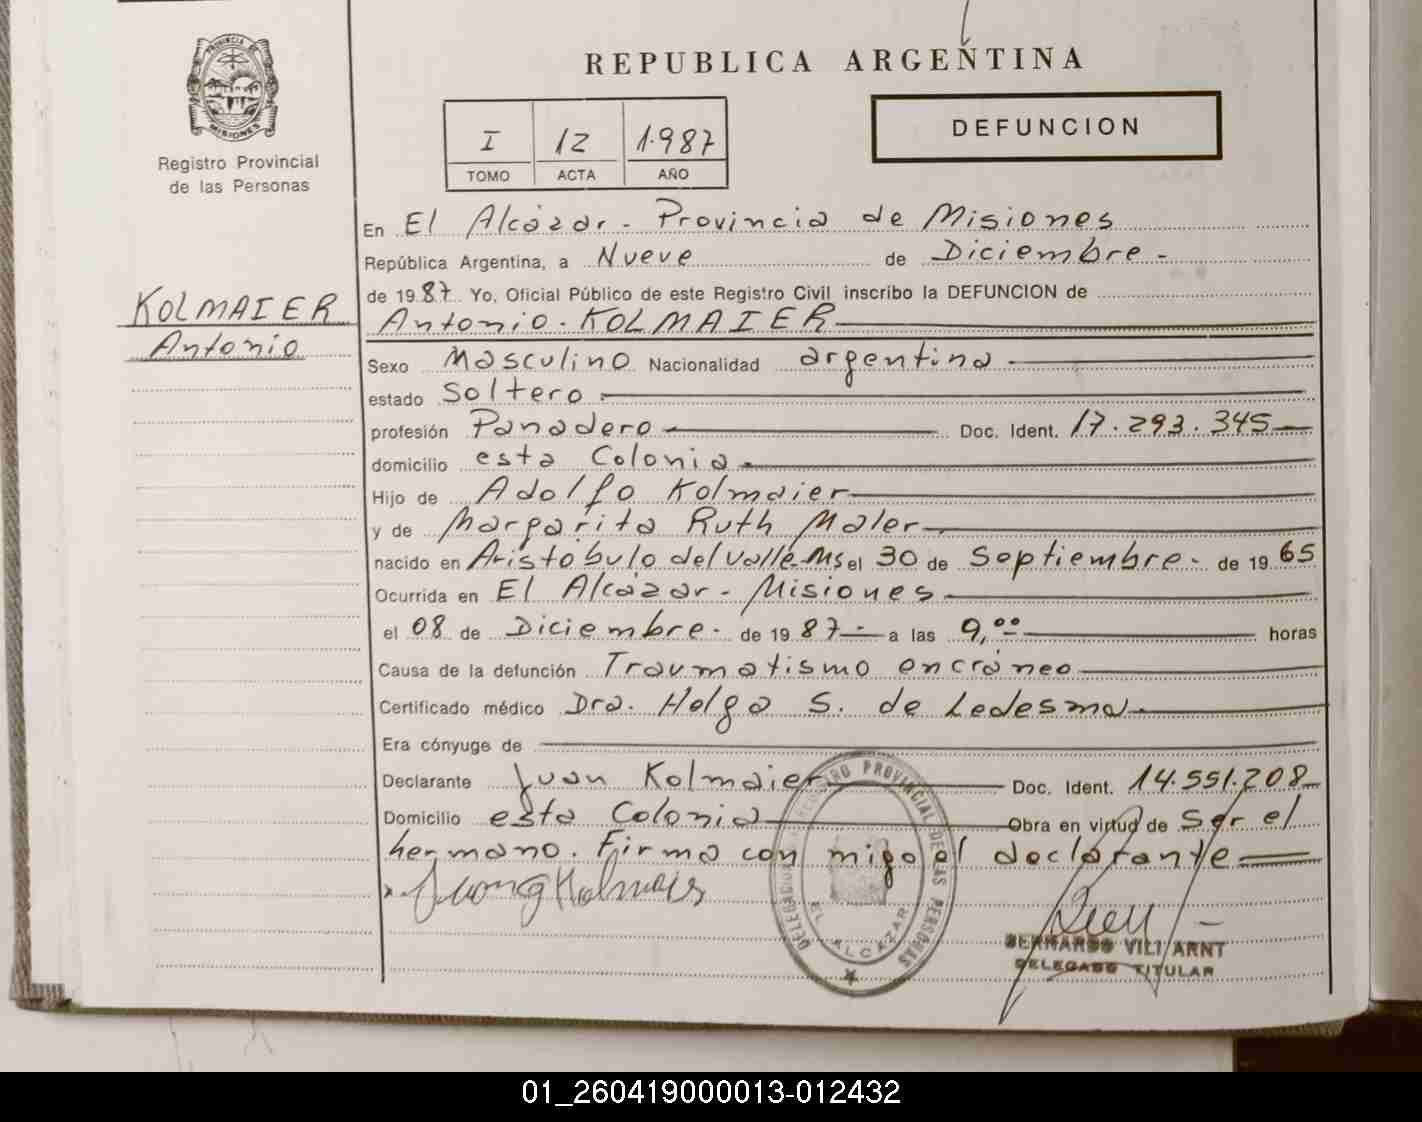 PROVINCIA DE
MISIONES
Registro Provincial
de las Personas
REPUBLICA ARGENTINA
I 12 1.987
TOMO ACTA AÑO
DEFUNCION
En El Alcázar - Provincia de Misiones
República Argentina, a Nueve de Diciembre -
de 1987 Yo, Oficial Público de este Registro Civil inscribo la DEFUNCION de
KOLMAIER
Antonio
Antonio. KOLMAIER
Sexo Masculino Nacionalidad argentina
estado Soltero
profesión Panadero Doc. Ident. 17.293.345
domicilio esta Colonia
Hijo de Adolfo Kolmaier
y de Margarita Ruth Maler
nacido en Aristóbulo del Valle-Ms el 30 de Septiembre - de 1965
Ocurrida en El Alcázar - Misiones
el 08 de Diciembre - de 1987 - a las 9,00 horas
Causa de la defunción Traumatismo encráneo
Certificado médico Dra. Helga S. de Ledesma
Era cónyuge de
Declarante Juan Kolmaier Doc. Ident. 14.551.208
Domicilio esta Colonia Obra en virtud de Ser el
hermano. Firma con migo el declarante
DELEGACION REGISTRO PROVINCIAL DE LAS PERSONAS
EL ALCAZAR
BERNARDO VILI ARNT
DELEGADO TITULAR
01_260419000013-012432